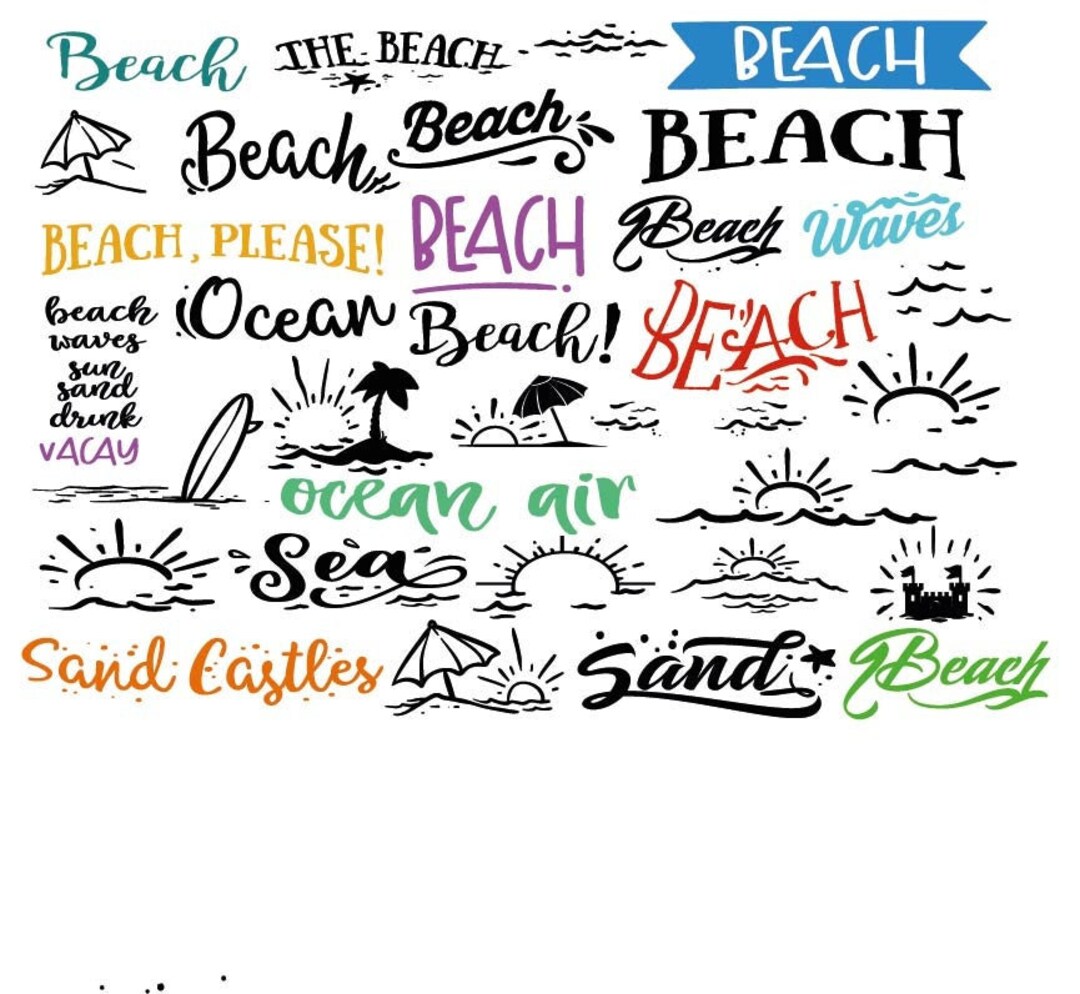 Beach
THE BEACH
BEACH
Beach
Beach
BEACH
BEACH, PLEASE!
BEACH
Beach
Waves
beach
waves
sun
sand
drunk
VACAY
Ocean
Beach!
BEACH
ocean air
Sea
Sand Castles
Sand
Beach